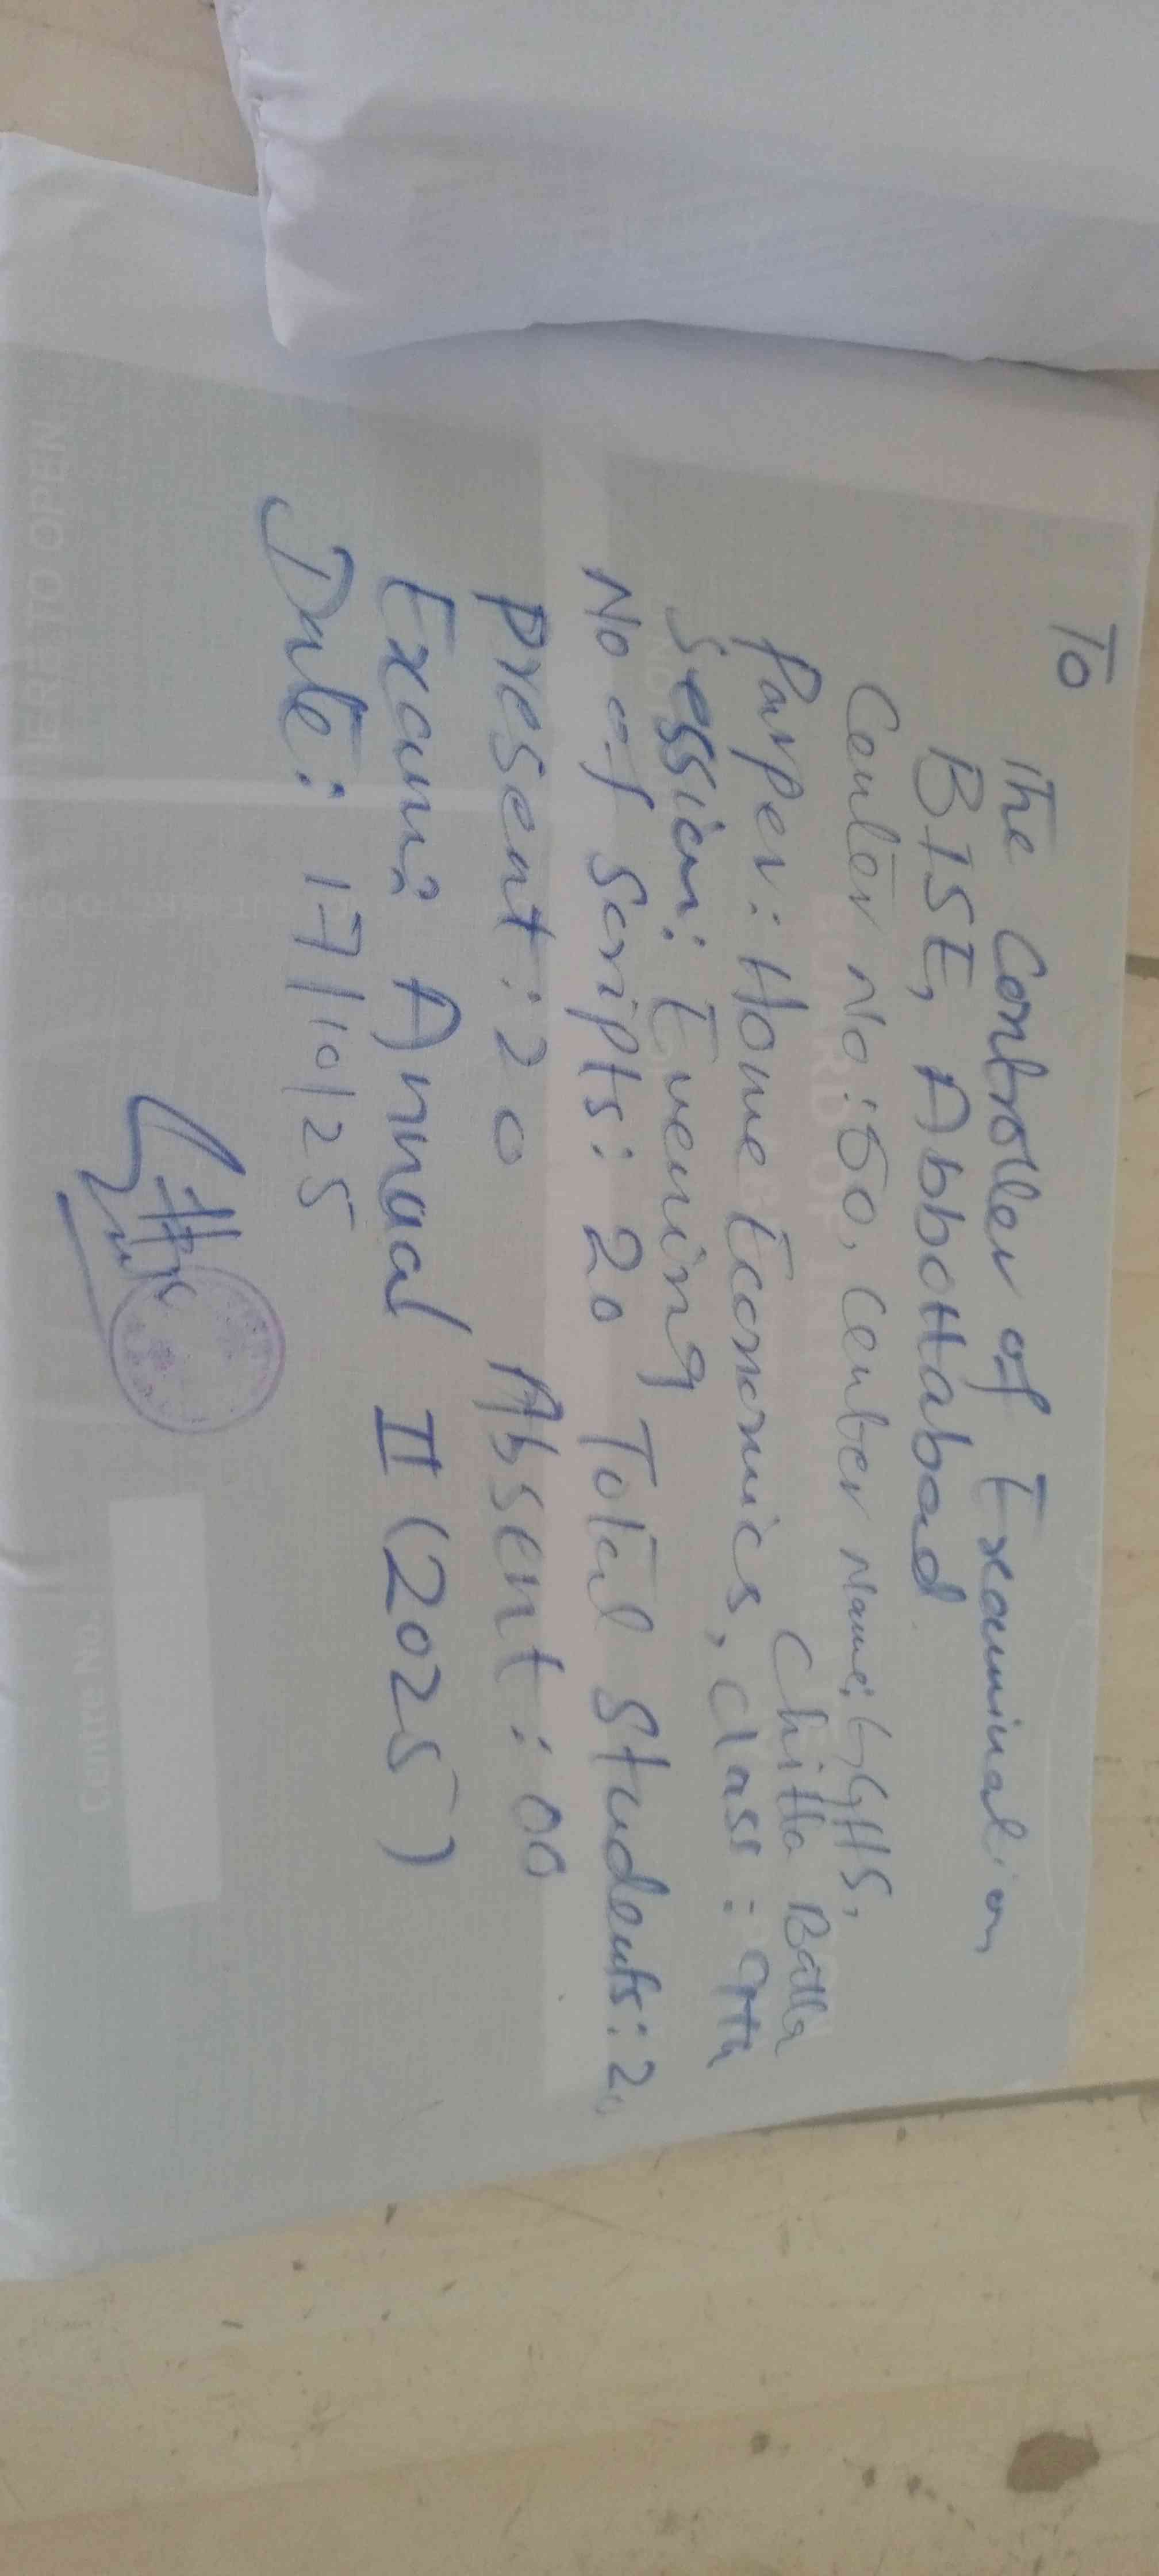 To
The Controller of Examination
BISE, Abbottabad.
Center No: 60, Center Name: GGHS,
Chitta Batta
Paper: Home Economics, Class: 9th
Session: Evening
No of Scripts: 20 Total Students: 20
Present: 20 Absent: 00
Exam: Annual II (2025)
Date: 17/10/25
Centre No.
TO OPEN